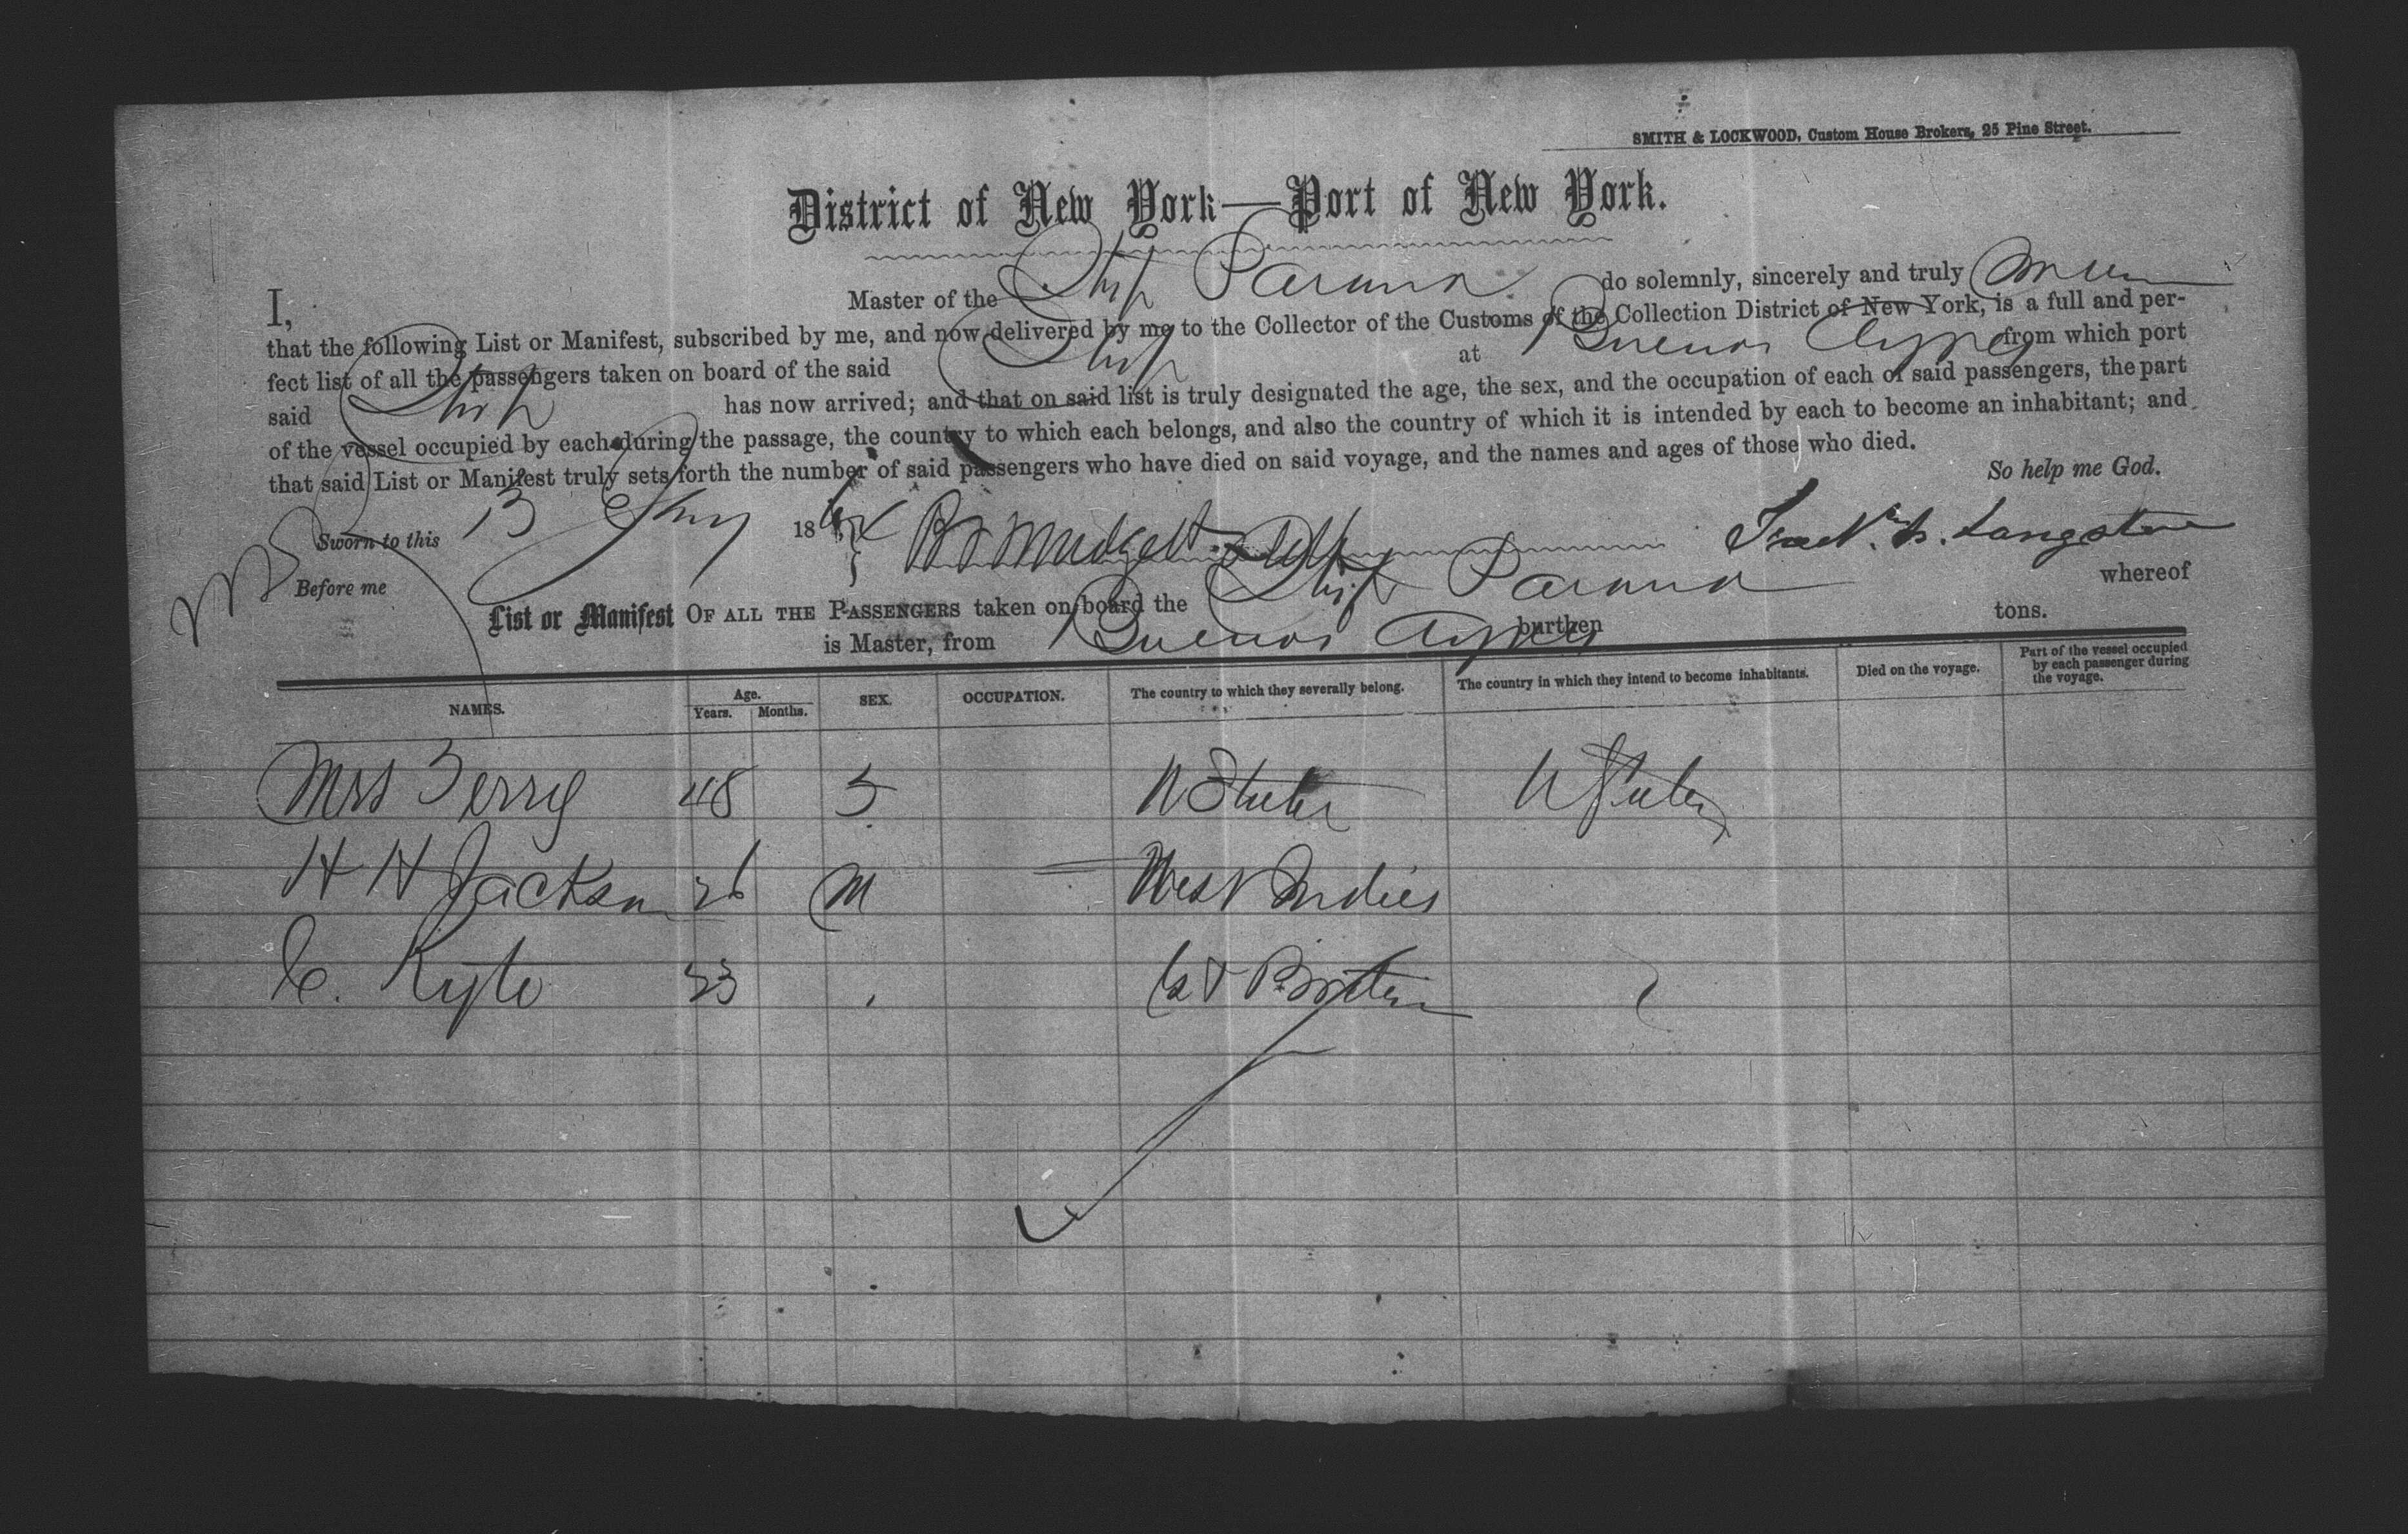 SMITH & LOCKWOOD, Custom House Brokers, 25 Pine Street.
District of New York—Port of New York.
I, Master of the Ship Parana do solemnly, sincerely and truly
that the following List or Manifest, subscribed by me, and now delivered by me to the Collector of the Customs of the Collection District of New York, is a full and per-
fect list of all the passengers taken on board of the said Ship at Buenos Ayres from which port
said Ship has now arrived; and that on said list is truly designated the age, the sex, and the occupation of each of said passengers, the part
of the vessel occupied by each during the passage, the country to which each belongs, and also the country of which it is intended by each to become an inhabitant; and
that said List or Manifest truly sets forth the number of said passengers who have died on said voyage, and the names and ages of those who died.
So help me God.
Sworn to this 13 186
Before me
List or Manifest OF ALL THE PASSENGERS taken on board the Ship Parana whereof
is Master, from Buenos Ayres burthen tons.
NAMES. Age. Years. Months. SEX. OCCUPATION. The country to which they severally belong. The country in which they intend to become inhabitants. Died on the voyage. Part of the vessel occupied by each passenger during the voyage.
Mrs 48 U States U States
H H Jackson 26 M West Indies
C. Kyte 33 Gt Britain